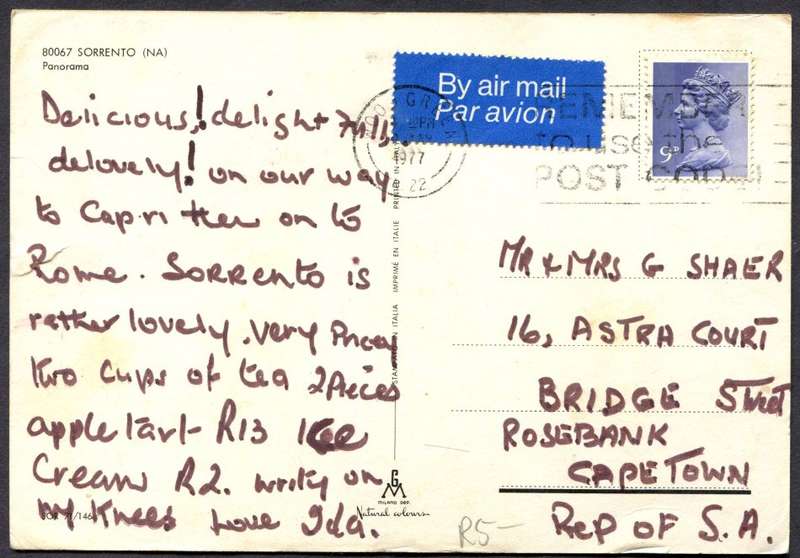 80067 SORRENTO (NA)
Panorama
Delicious! delightfully!
delovely! on our way
to Capri then on to
Rome. SORRENTO is
rather lovely. Very Pricey
two cups of tea 2 Pieces
apple tart R13 Ice
Cream R2. writing on
my knees Love Ida.
By air mail
Par avion
1977
22
REMEMBER
to use the
POST CODE
9P
MR & MRS G SHAER
16, ASTRA COURT
BRIDGE Street
ROSEBANK
CAPETOWN
Rep OF S.A.
STAMPATO IN ITALIA IMPRIMÉ EN ITALIE PRINTED IN ITALY
GM
MILANO DEP.
Natural colours
R5-